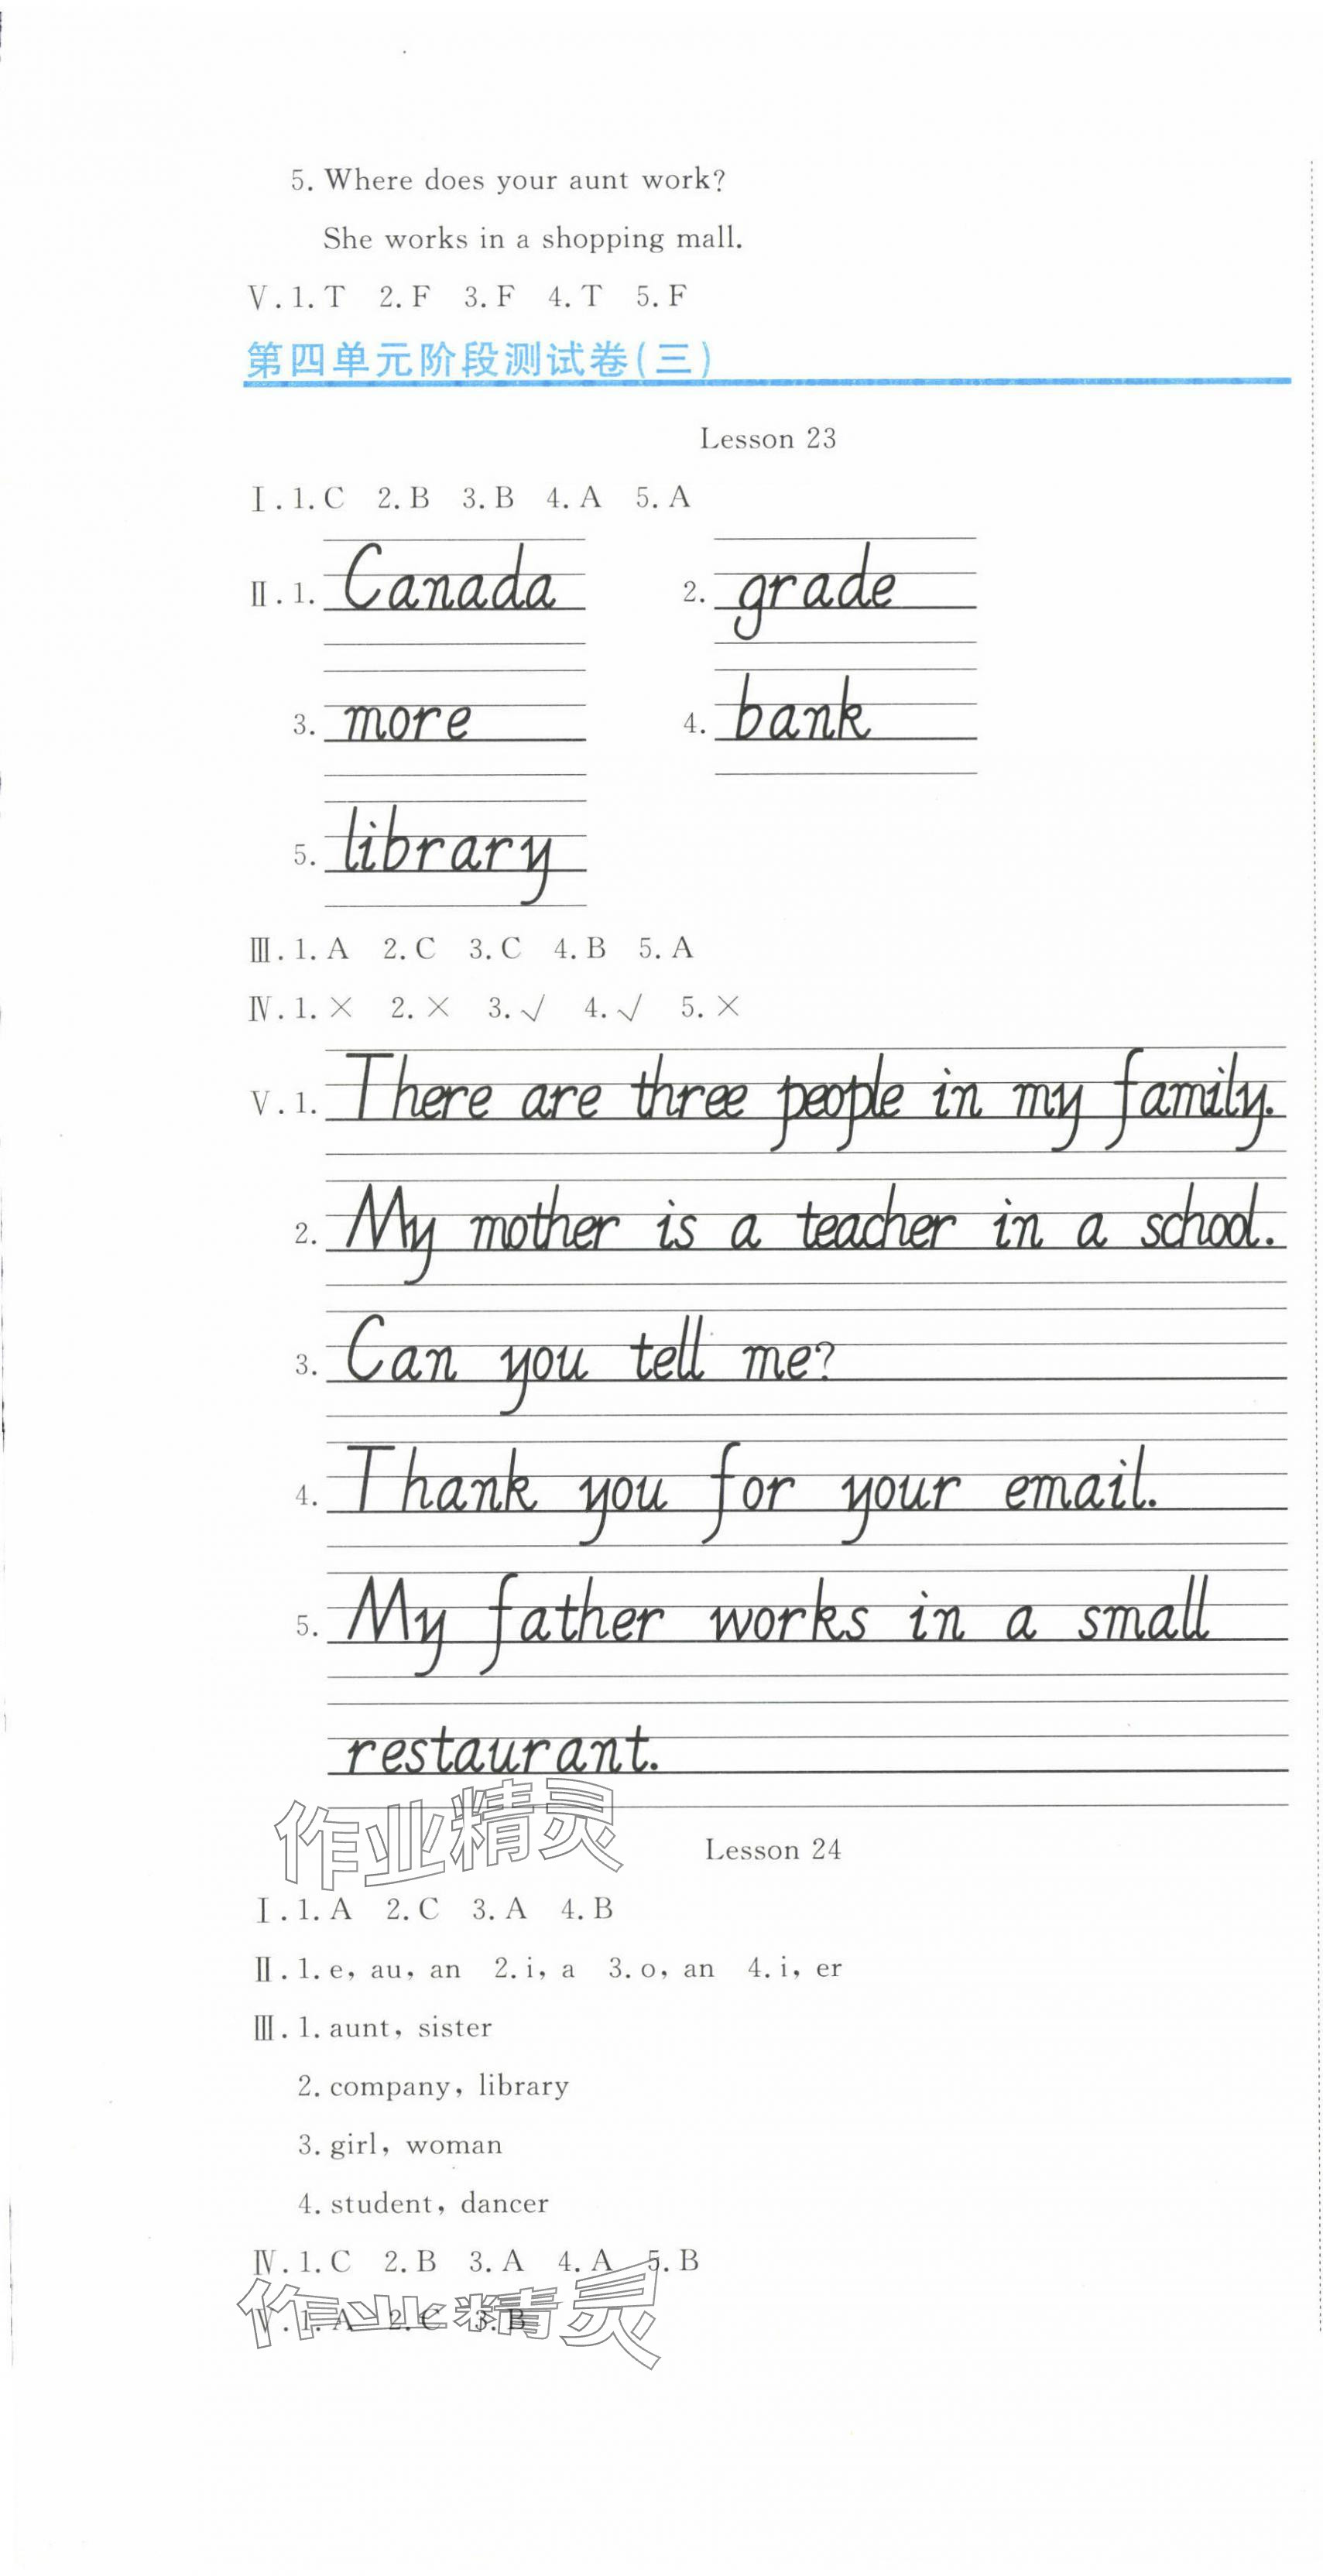 5. Where does your aunt work?
She works in a shopping mall.
Ⅴ. 1. T 2. F 3. F 4. T 5. F
第四单元阶段测试卷(三)
Lesson 23
Ⅰ. 1. C 2. B 3. B 4. A 5. A
Ⅱ. 1. Canada 2. grade
3. more 4. bank
5. library
Ⅲ. 1. A 2. C 3. C 4. B 5. A
Ⅳ. 1. × 2. × 3. √ 4. √ 5. ×
Ⅴ. 1. There are three people in my family.
2. My mother is a teacher in a school.
3. Can you tell me?
4. Thank you for your email.
5. My father works in a small
restaurant.
作业精灵
Lesson 24
Ⅰ. 1. A 2. C 3. A 4. B
Ⅱ. 1. e, au, an 2. i, a 3. o, an 4. i, er
Ⅲ. 1. aunt, sister
2. company, library
3. girl, woman
4. student, dancer
Ⅳ. 1. C 2. B 3. A 4. A 5. B
Ⅴ. 1. A 2. C 3. B
作业精灵